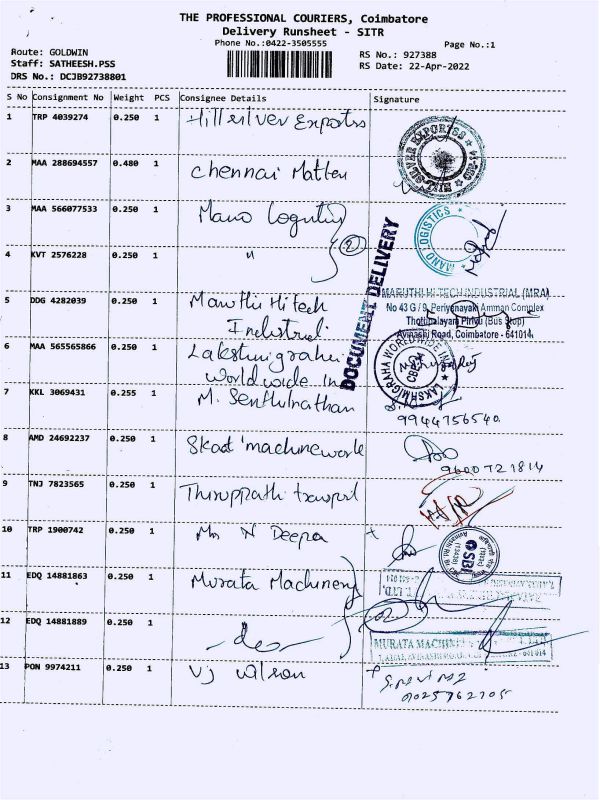 THE PROFESSIONAL COURIERS, Coimbatore
Delivery Runsheet - SITR
Phone No.:0422-3505555
Page No.:1
Route: GOLDWIN
Staff: SATHEESH.PSS
DRS No.: DCJB92738801
RS No.: 927388
RS Date: 22-Apr-2022
S No Consignment No Weight PCS Consignee Details Signature
1 TRP 4039274 0.250 1 Hillsilver Exports
HILL SILVER EXPORTSS
2 MAA 288694557 0.480 1 Chennai Matten
3 MAA 566077533 0.250 1 Mano Logistics
MANO LOGISTICS
4 KVT 2576228 0.250 1 "
2
DOCUMENT DELIVERY
5 DDG 4282039 0.250 1 Maruthi Hitech
Industrial
MARUTHI HI-TECH INDUSTRIAL (MRA)
No 43 G / 9, Periyanayaki Amman Complex
Thottipalayam Pirivu (Bus Stop)
Avinashi Road, Coimbatore - 641014.
6 MAA 565565866 0.250 1 Lakshmigraha
Worldwide Inc
LAKSHMIGRAHA WORLDWIDE INC
CBE
7 KKL 3069431 0.255 1 M. Senthilnathan
9944756540
8 AMD 24692237 0.250 1 Skad machine work
9600721814
9 TNJ 7823565 0.250 1 Thiruppathi transport
10 TRP 1900742 0.250 1 Mr N Deepa
SBI
11 EDQ 14881863 0.250 1 Murata Machinery
12 EDQ 14881889 0.250 1 -do-
MURATA MACHIN
13 PON 9974211 0.250 1 VJ Wilson
9025762705